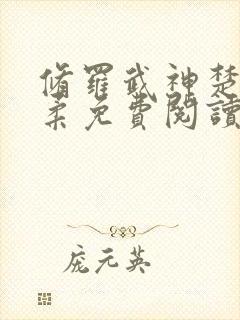 脩羅武神楚
柔免費閱讀
龐元英